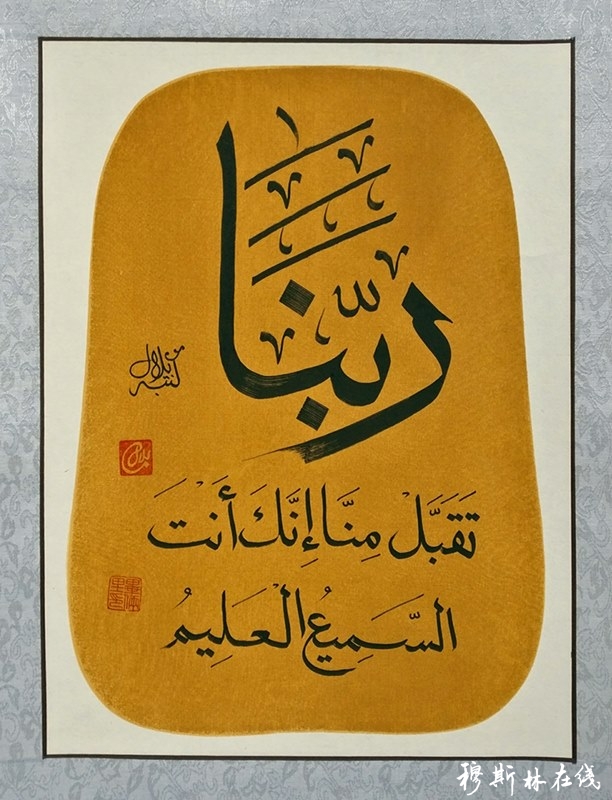 رَبَّنَا
تَقَبَّلْ مِنَّا إِنَّكَ أَنْتَ
السَّمِيعُ الْعَلِيمُ
كتبه بلال
穆斯林在线